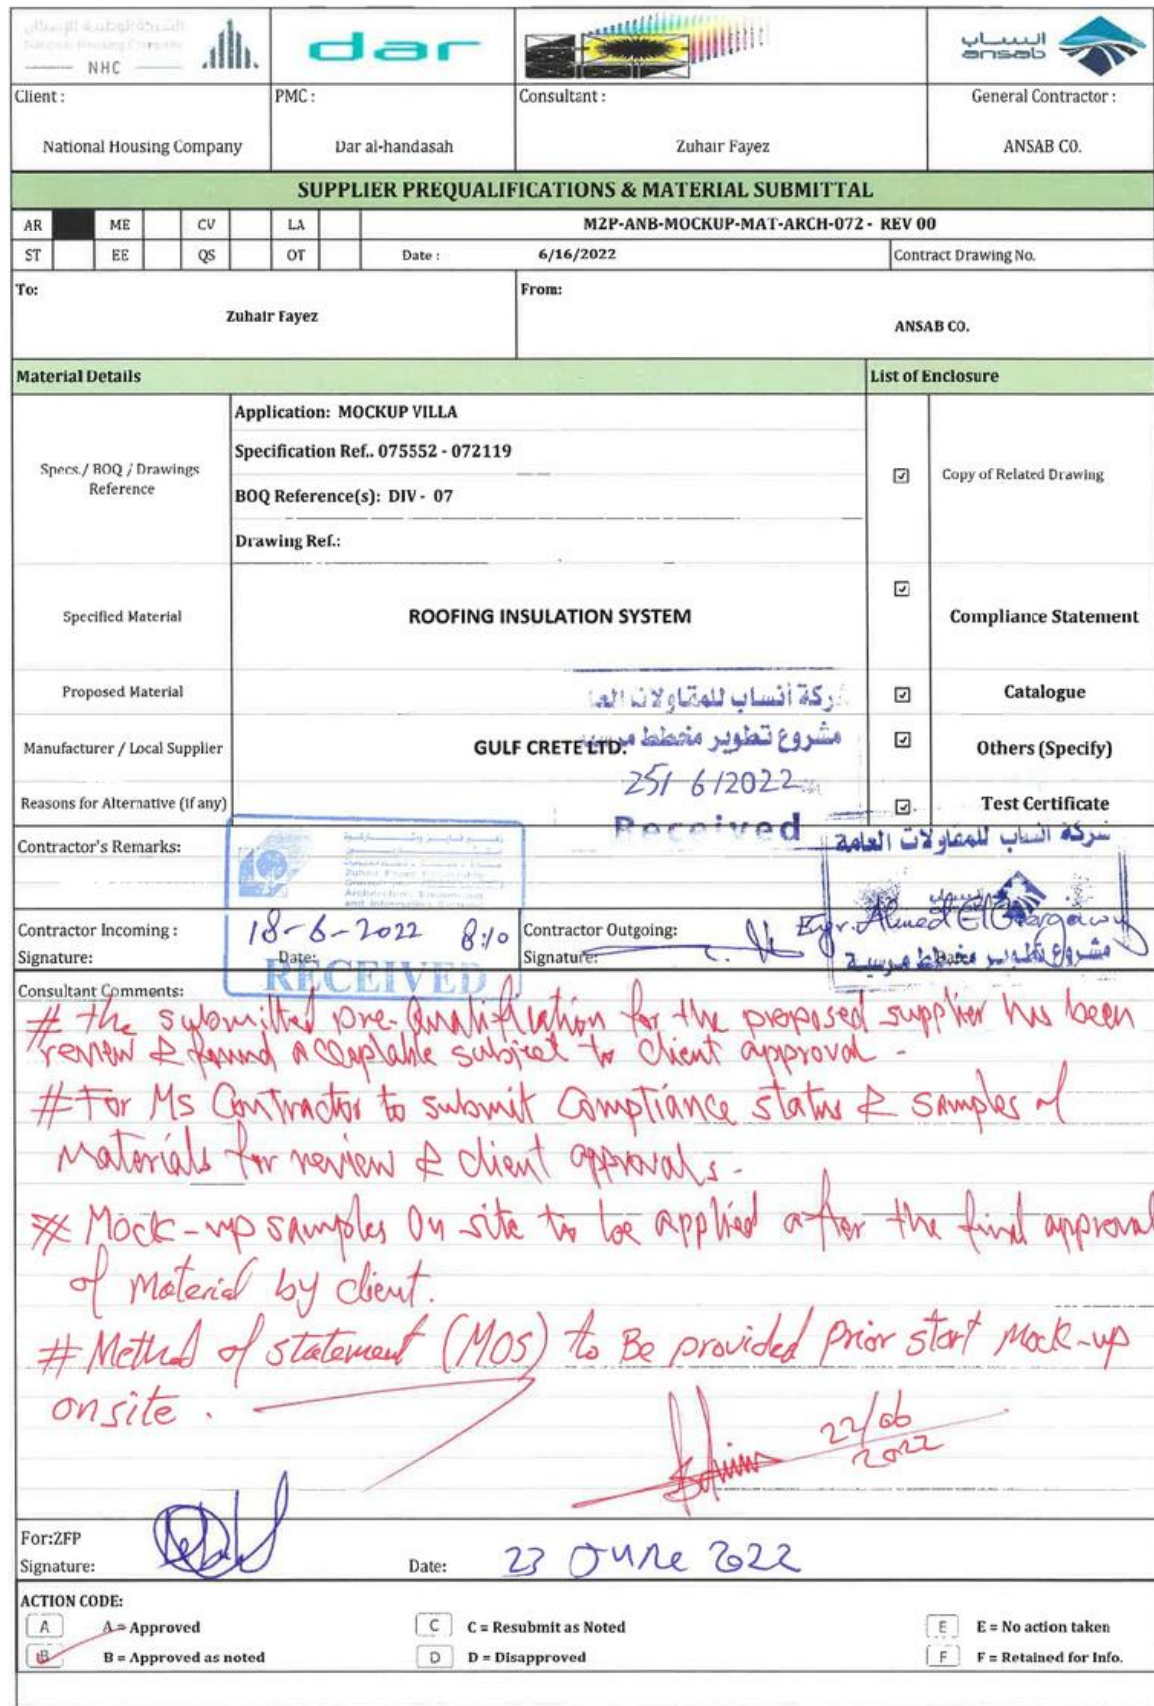 NHC
dar
انساب
ansab
Client :
PMC :
Consultant :
General Contractor :
National Housing Company
Dar al-handasah
Zuhair Fayez
ANSAB CO.
SUPPLIER PREQUALIFICATIONS & MATERIAL SUBMITTAL
AR ME CV LA M2P-ANB-MOCKUP-MAT-ARCH-072 - REV 00
ST EE QS OT Date : 6/16/2022 Contract Drawing No.
To:
Zuhair Fayez
From:
ANSAB CO.
Material Details
List of Enclosure
Specs./ BOQ / Drawings
Reference
Application: MOCKUP VILLA
Specification Ref.. 075552 - 072119
BOQ Reference(s): DIV - 07
Drawing Ref.:
Copy of Related Drawing
Specified Material
ROOFING INSULATION SYSTEM
Compliance Statement
Proposed Material
Catalogue
Manufacturer / Local Supplier
GULF CRETE LTD.
Others (Specify)
Reasons for Alternative (if any)
Test Certificate
شركة أنساب للمقاولات العا
مشروع تطوير مخطط
25/ 6/2022
Received
Contractor's Remarks:
شركة انساب للمقاولات العامة
Contractor Incoming :
Signature:
18-6-2022 8:10
Date:
RECEIVED
Contractor Outgoing:
Signature:
Engr. Ahmed
مشروع تطوير مخطط مرسية
Consultant Comments:
# the submitted pre-Qualification for the proposed supplier has been
review & found acceptable subject to client approval -
# For Ms Contractor to submit Compliance status & samples of
Materials for review & client approvals -
# Mock-up samples On site to be applied after the final approval
of Material by client.
# Method of statement (MOS) to Be provided prior start Mock-up
onsite .
22/06
2022
For:ZFP
Signature:
Date: 23 June 2022
ACTION CODE:
A A = Approved
B B = Approved as noted
C C = Resubmit as Noted
D D = Disapproved
E E = No action taken
F F = Retained for Info.